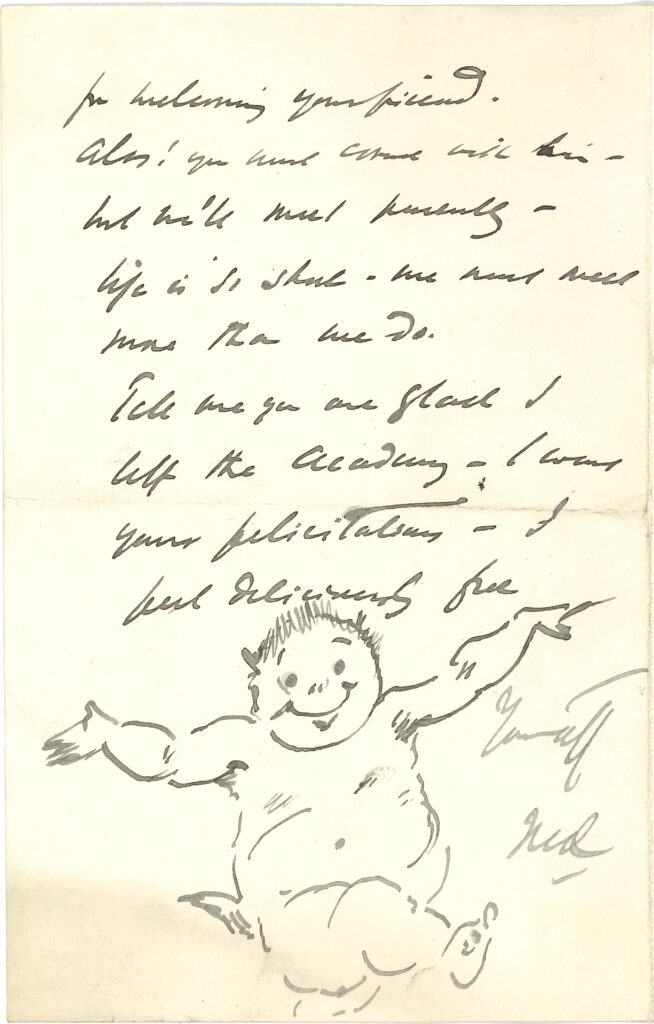 for welcoming your friend.
Alas! you must come with him -
but we'll meet presently -
life is so short - we must meet
more than we do.
Tell me you are glad I
left the Academy - I want
your felicitations - I
feel deliciously free
Your aff
Ned